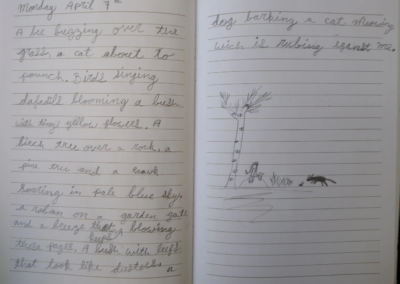 Monday April 7th
A bee buzzing over the
grass. a cat about to
pounch. Birds singing
dafodills blooming a bush
with tiny yellow flowers. A
birch tree over a rock. a
pine tree and a hawk
soaring in pale blue sky.
a robin on a garden gate
And a breeze that keeps blowing
these pages. A bush with leefs
that look like a
dog barking a cat meowing
wich is rubing against me.